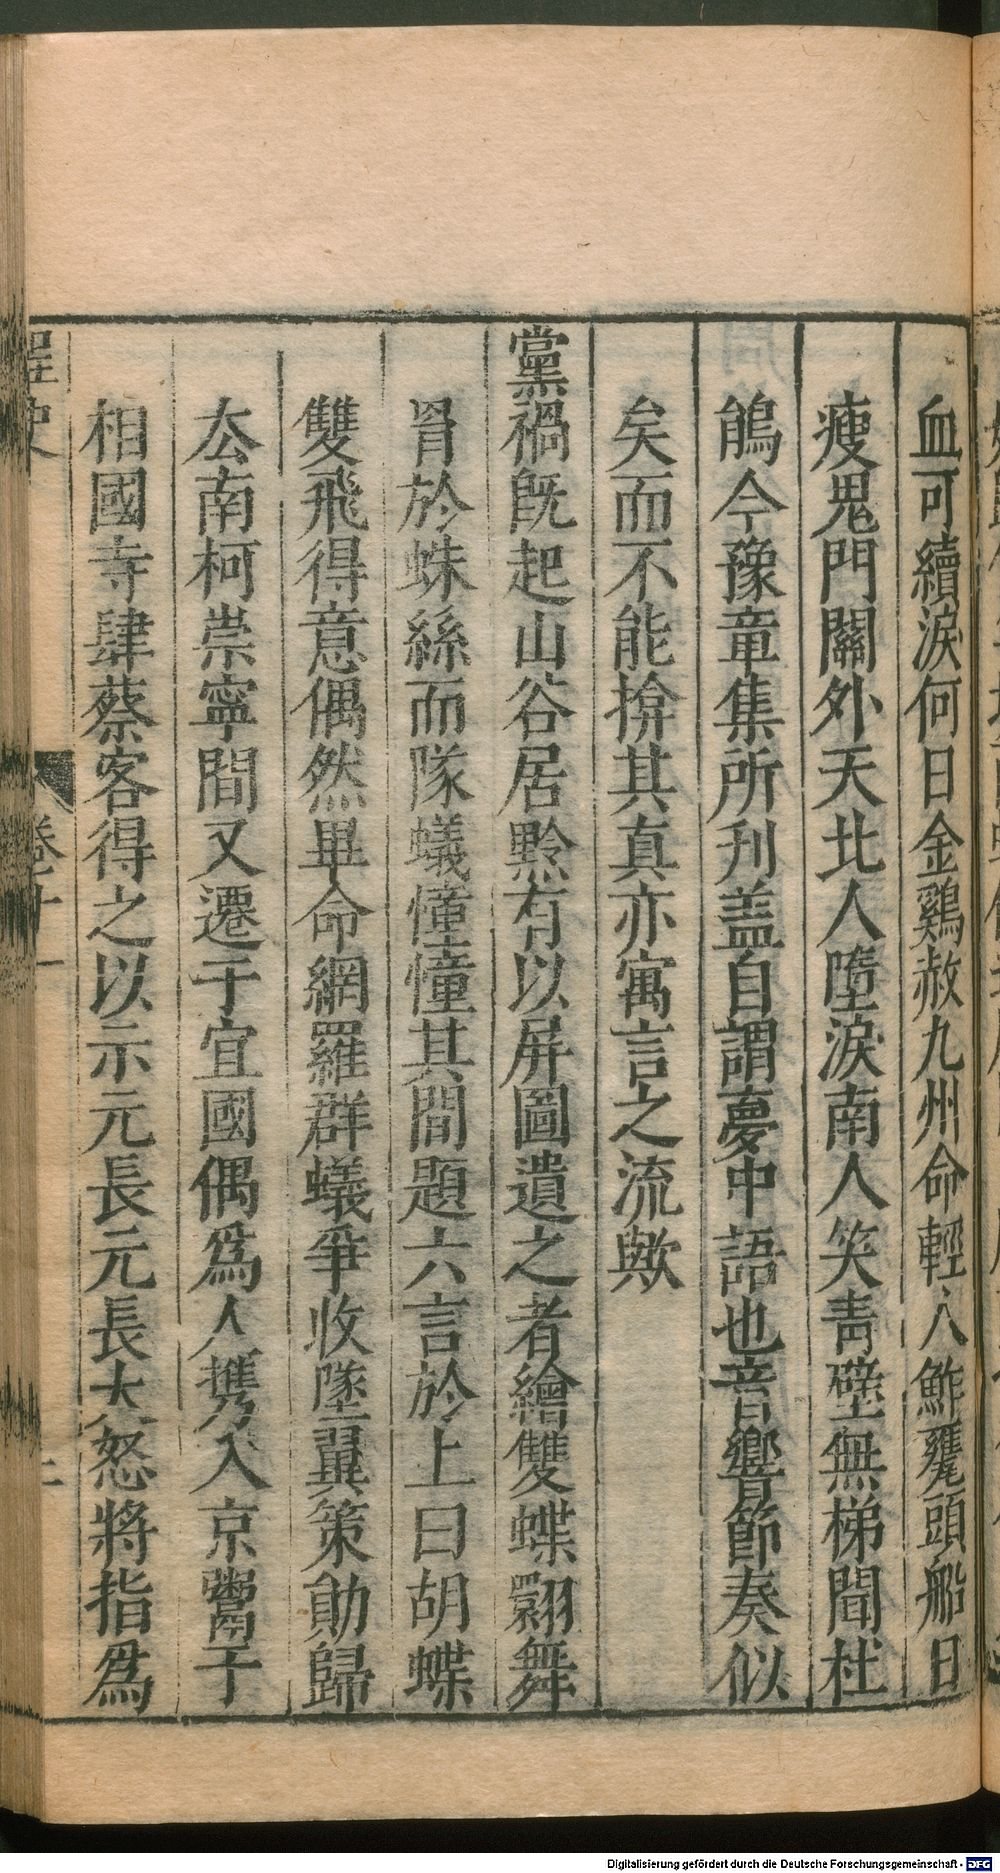 血可續淚何日金鷄赦九州命輕人鮓甕頭船日
瘦鬼門關外天北人墮淚南人笑靑壁無梯聞杜
鵑今豫章集所刋盖自謂夢中語也音響節奏似
矣而不能揜其真亦寓言之流歟
黨禍旣起山谷居黔有以屏圖遺之者繪雙蝶翾舞
罥於蛛絲而隊蟻憧憧其間題六言於上曰胡蝶
雙飛得意偶然畢命網羅群蟻爭收墜翼策勛歸
去南柯崇寧間又遷于宜國偶爲人携入京鬻于
相國寺肆蔡客得之以示元長元長大怒將指爲
桯史
卷十一
Digitalisierung gefördert durch die Deutsche Forschungsgemeinschaft - DFG